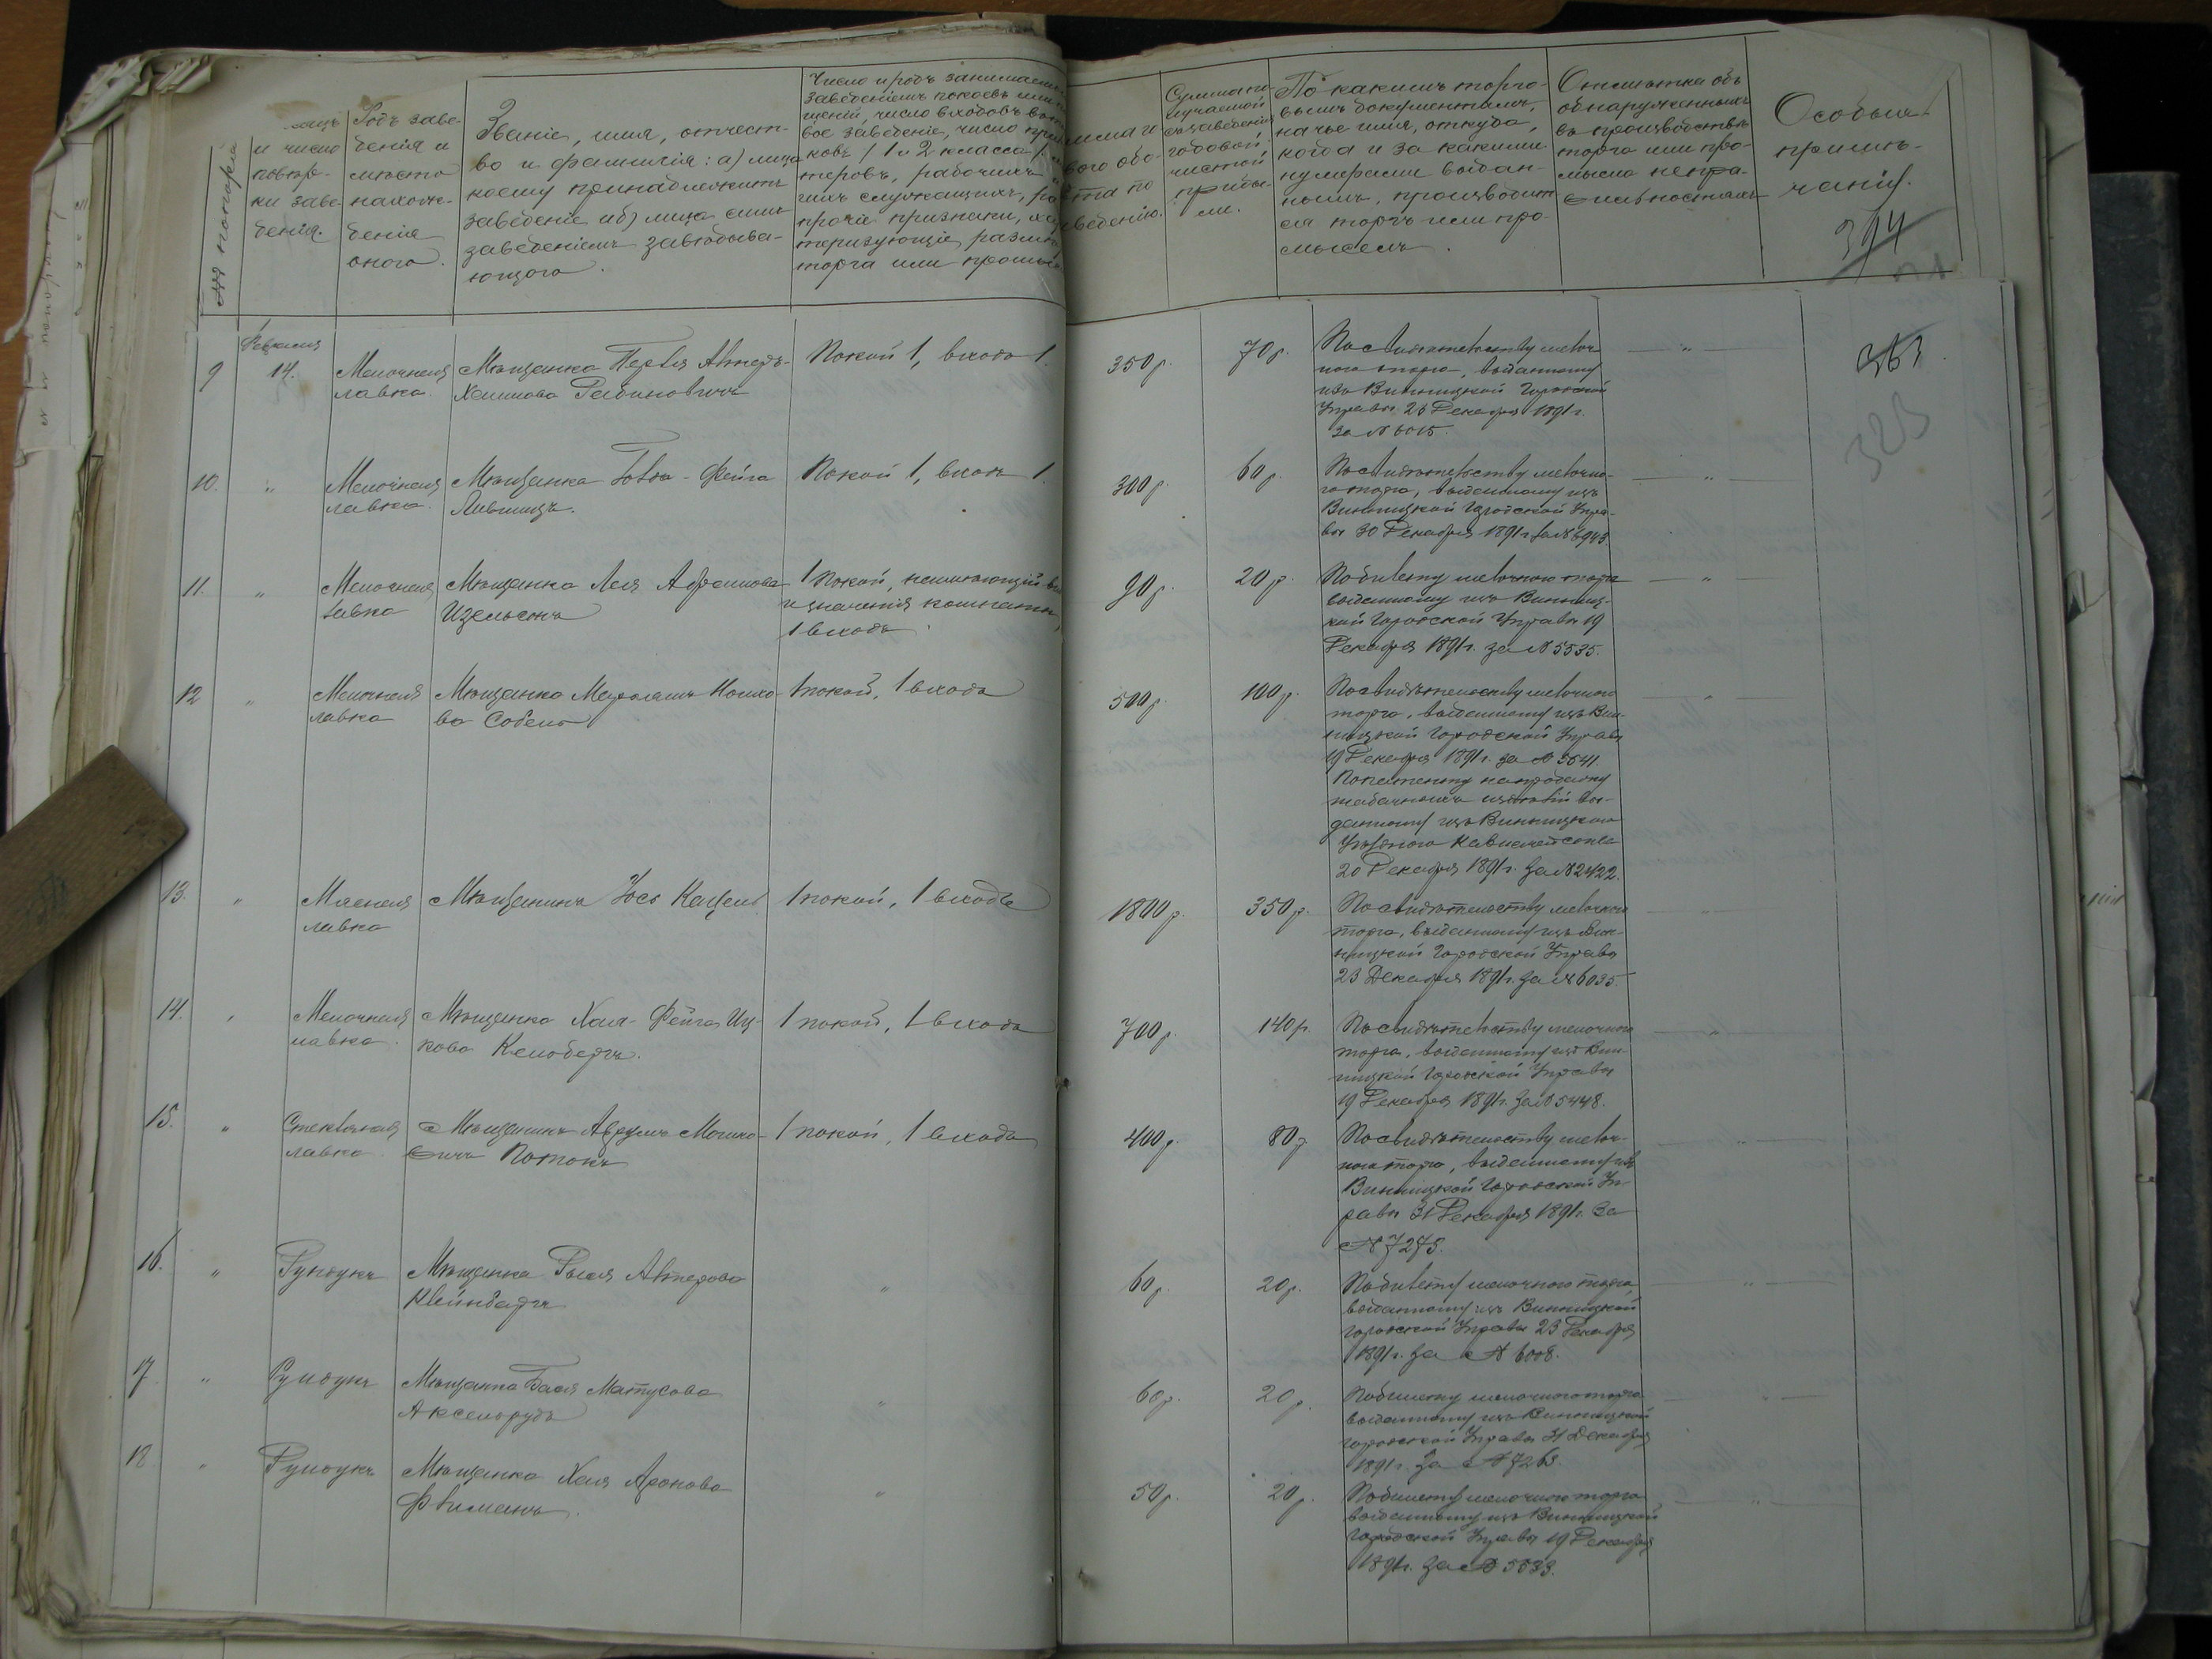 №№ по порядку
и число
повѣр-
ки заве-
денія.
Родъ заве-
денія и
мѣсто
нахож-
денія
онаго.
Званіе, имя, отчест-
во и фамилія: а) лица
коему принадлежитъ
заведеніе и б) лица симъ
заведеніемъ завѣдыва-
ющаго.
Число и родъ занимаемыхъ
заведеніемъ покоевъ или
щеній, число входовъ въ
вое заведеніе, число
ковъ (1 и 2 класса),
теровъ, рабочихъ и
гихъ служащихъ,
прочіе признаки,
теризующіе
торга или
ваго обо-
та по
веденію.
Сумма по-
лучаемой
заведенія
годовой
чистой
прибы-
ли.
По какимъ торго-
вымъ документамъ,
на чье имя, откуда,
когда и за какими
нумерами выдан-
нымъ, производит-
ся торгъ или про-
мыселъ.
Отмѣтка объ
обнаруженныхъ
въ производствѣ
торга или про-
мысла непра-
вильностяхъ
Особыя
примѣ-
чанія.
394
363
323
Февраля
9 14. Мелочная Мѣщанка Перля Алтеръ- Покой 1, входъ 1. 350 р. 70 р. По свидѣтельству мелоч- "
лавка. Хаимова Рабиновичъ
наго торга, выданному
изъ Винницкой Городской
Управы 23 Декабря 1891 г.
за № 6015.
10. " Мелочная Мѣщанка Фейга Покой 1, входъ 1. 300 р. 60 р. По свидѣтельству мелочна- "
лавка. Лившицъ.
го торга, выданному изъ
Винницкой Городской Упра-
вы 30 Декабря 1891 г. за № 6943.
11. " Мелочная Мѣщанка Лея Абрамова 1 покой, неимѣющій 90 р. 20 р. По билету мелочного торга "
лавка Изельсонъ значенія комнаты,
1 входъ.
выданному изъ Винниц-
кой Городской Управы 19
Декабря 1891 г. за № 5535.
12 " Мелочная Мѣщанка Мошко- 1 покой, 1 входъ 500 р. 100 р. По свидѣтельству мелочного "
лавка ва Собель
торга, выданному изъ Вин-
ницкой Городской Управы
19 Декабря 1891 г. за № 5641.
По патенту на продажу
табачныхъ издѣлій вы-
данному изъ Винницкаго
Уѣзднаго Казначейства
20 Декабря 1891 г. за № 2422.
13. " Мясная Мѣщанинъ Іось Кацель 1 покой, 1 входъ 1800 р. 350 р. По свидѣтельству мелочного "
лавка
торга, выданному изъ Вин-
ницкой Городской Управы
23 Декабря 1891 г. за № 6035.
14. " Мелочная Мѣщанка Хая-Фейга Иц- 1 покой, 1 входъ 700 р. 140 р. По свидѣтельству мелочного "
лавка. кова
торга, выданному изъ Вин-
ницкой Городской Управы
19 Декабря 1891 г. за № 5448.
15. " Стекляная Мѣщанинъ Аврумъ Мошко- 1 покой, 1 входъ 400 р. 80 р. По свидѣтельству мелоч- "
лавка. вичъ Потокъ
наго торга, выданному изъ
Винницкой Городской Уп-
равы 31 Декабря 1891 г. за
№ 7275.
16. " Рундукъ Мѣщанка Рыся Алтерова " 60 р. 20 р. По билету мелочного торга, "
Клейнбардъ
выданному изъ Винницкой
Городской Управы 23 Декабря
1891 г. за № 6008.
17. " Рундукъ Мѣщанка Бася Матусова " 60 р. 20 р. По билету мелочного торга "
Аксельрудъ
выданному изъ Винницкой
Городской Управы 31 Декабря
1891 г. за № 7263.
18 " Рундукъ Мѣщанка Хая Аронова " 50 р. 20 р. По билету мелочного торга "
выданному изъ Винницкой
Городской Управы 19 Декабря
1891 г. за № 5533.